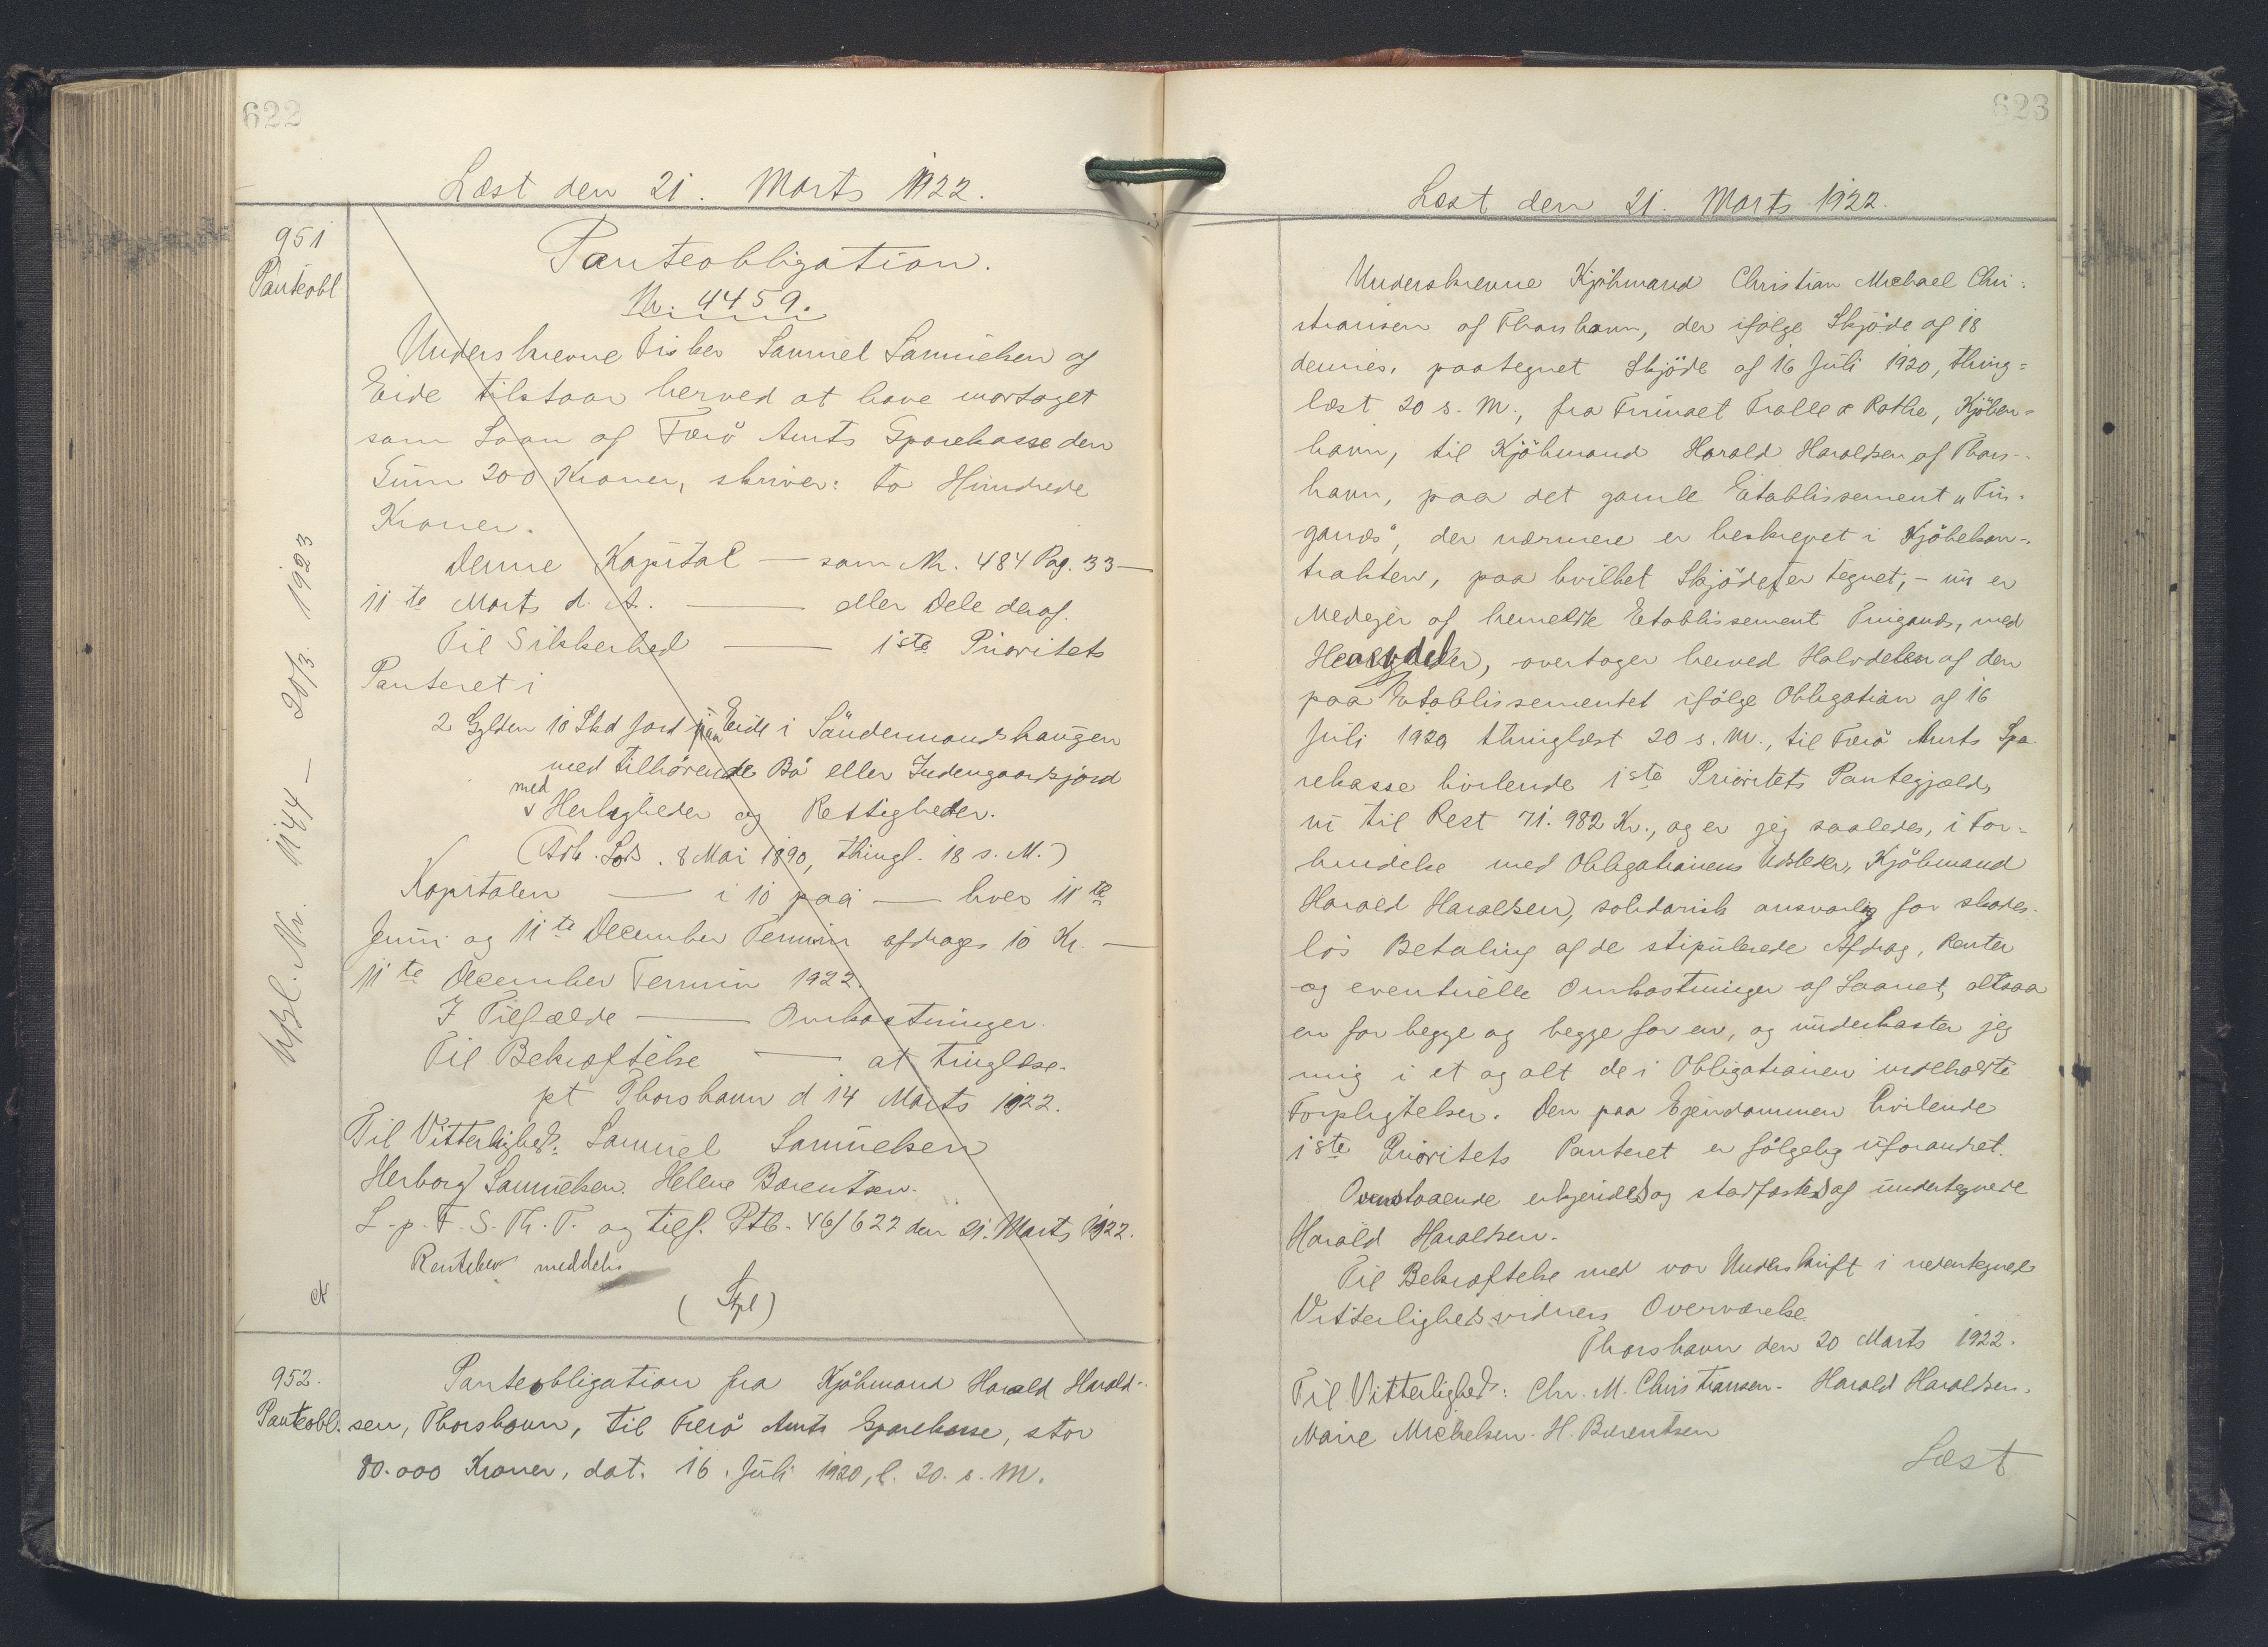 622
Læst den 21. Marts 1922.
951
Panteobl
Panteobligation.
Nr. 4459.
Underskrevne Fisker Samuel Samuelsen af
Eide tilstaar herved at have modtaget
som Laan af Færö Amts Sparekasse den
Sum 200 Kroner, skriver: to Hundrede
Kroner.
Denne Kapital — som Nr. 484 Pag. 33 —
11te Marts d. A. — eller Dele deraf.
Til Sikkerhed — 1ste Prioritets
Panteret i
2 Gylden 10 Skd Jord paa Eide i Söndermandshaugen
med tilhörende Bö eller Indengaardsjord
med Herligheder og Rettigheder.
(Adk. Sk. 8 Mai 1890, thingl. 18 s. M.)
Kapitalen — i 10 paa — hver 11te
Juni og 11te December Termin afdrages 10 Kr. —
11te December Termin 1922.
I Tilfælde — Omkostninger.
Til Bekræftelse — at tinglæse.
pt Thorshavn d 14 Marts 1922.
Til Vitterlighed: Samuel Samuelsen
Herborg Samuelsen. Helene Bærentsen.
L. p. F. S. Th. T. og tilf. Ptb. 46/622 den 21. Marts 1922.
Rentebev meddelt
(Stpl)
Udsl. Nr. 1144 — 20/3 1923
952.
Panteobl.
Panteobligation fra Kjöbmand Harald Harald-
sen, Thorshavn, til Færö Amts Sparekasse, stor
80.000 Kroner, dat. 16. Juli 1920, l. 20. s. M.
623
Læst den 21. Marts 1922.
Underskrevne Kjöbmand Christian Michael Chri-
stiansen af Thorshavn, der ifölge Skjöde af 18
dennes, paategnet Skjöde af 16 Juli 1920, thing-
læst 20 s. M., fra Firmaet Tralle & Rothe, Kjöben-
havn, til Kjöbmand Harald Haraldsen af Thors-
havn, paa det gamle Etablissement "Tin-
ganæs", der nærmere er beskrevet i Kjöbekon-
trakten, paa hvilket Skjödet er tegnet, - nu er
Medejer af bemeldte Etablissement Tinganæs, med
Halvdelen, overtager herved Halvdelen af den
paa Etablissementet ifölge Obligation af 16
Juli 1920 thinglæst 20 s. M., til Færö Amts Spa-
rekasse hvilende 1ste Prioritets Pantegjæld,
nu til Rest 71.982 Kr., og er jeg saaledes, i For-
bindelse med Obligationens Udsteder, Kjöbmand
Harald Haraldsen, solidarisk ansvarlig for skades-
lös Betaling af de stipulerede Afdrag, Renter
og eventuelle Omkostninger af Laanet, altsaa
en for begge og begge for en, og underkaster jeg
mig i et og alt de i Obligationen indeholdte
Forpligtelser. Den paa Ejendommen hvilende
1ste Prioritets Panteret er fölgelig uforandret.
Ovenstaaende erkjendes og stadfæstes af undertegnede
Harald Haraldsen.
Til Bekræftelse med vor Underskrift i nedentegnede
Vitterlighedsvidners Overværelse.
Thorshavn den 20 Marts 1922.
Til Vitterlighed: Chr. M. Christiansen. Harald Haraldsen.
Marie Michelsen. H. Bærentsen
Læst